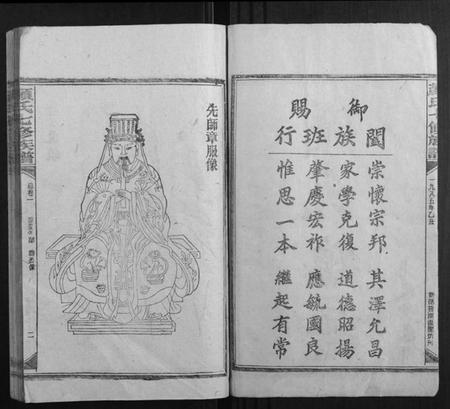 顏氏七修族譜
一九八五年乙丑
御賜
闔族班行
崇懷宗邦 其澤允昌
家學克復 道德昭揚
肇慶宏祚 應毓國良
惟思一本 繼起有常
先師章服像
顏氏七修族譜
二